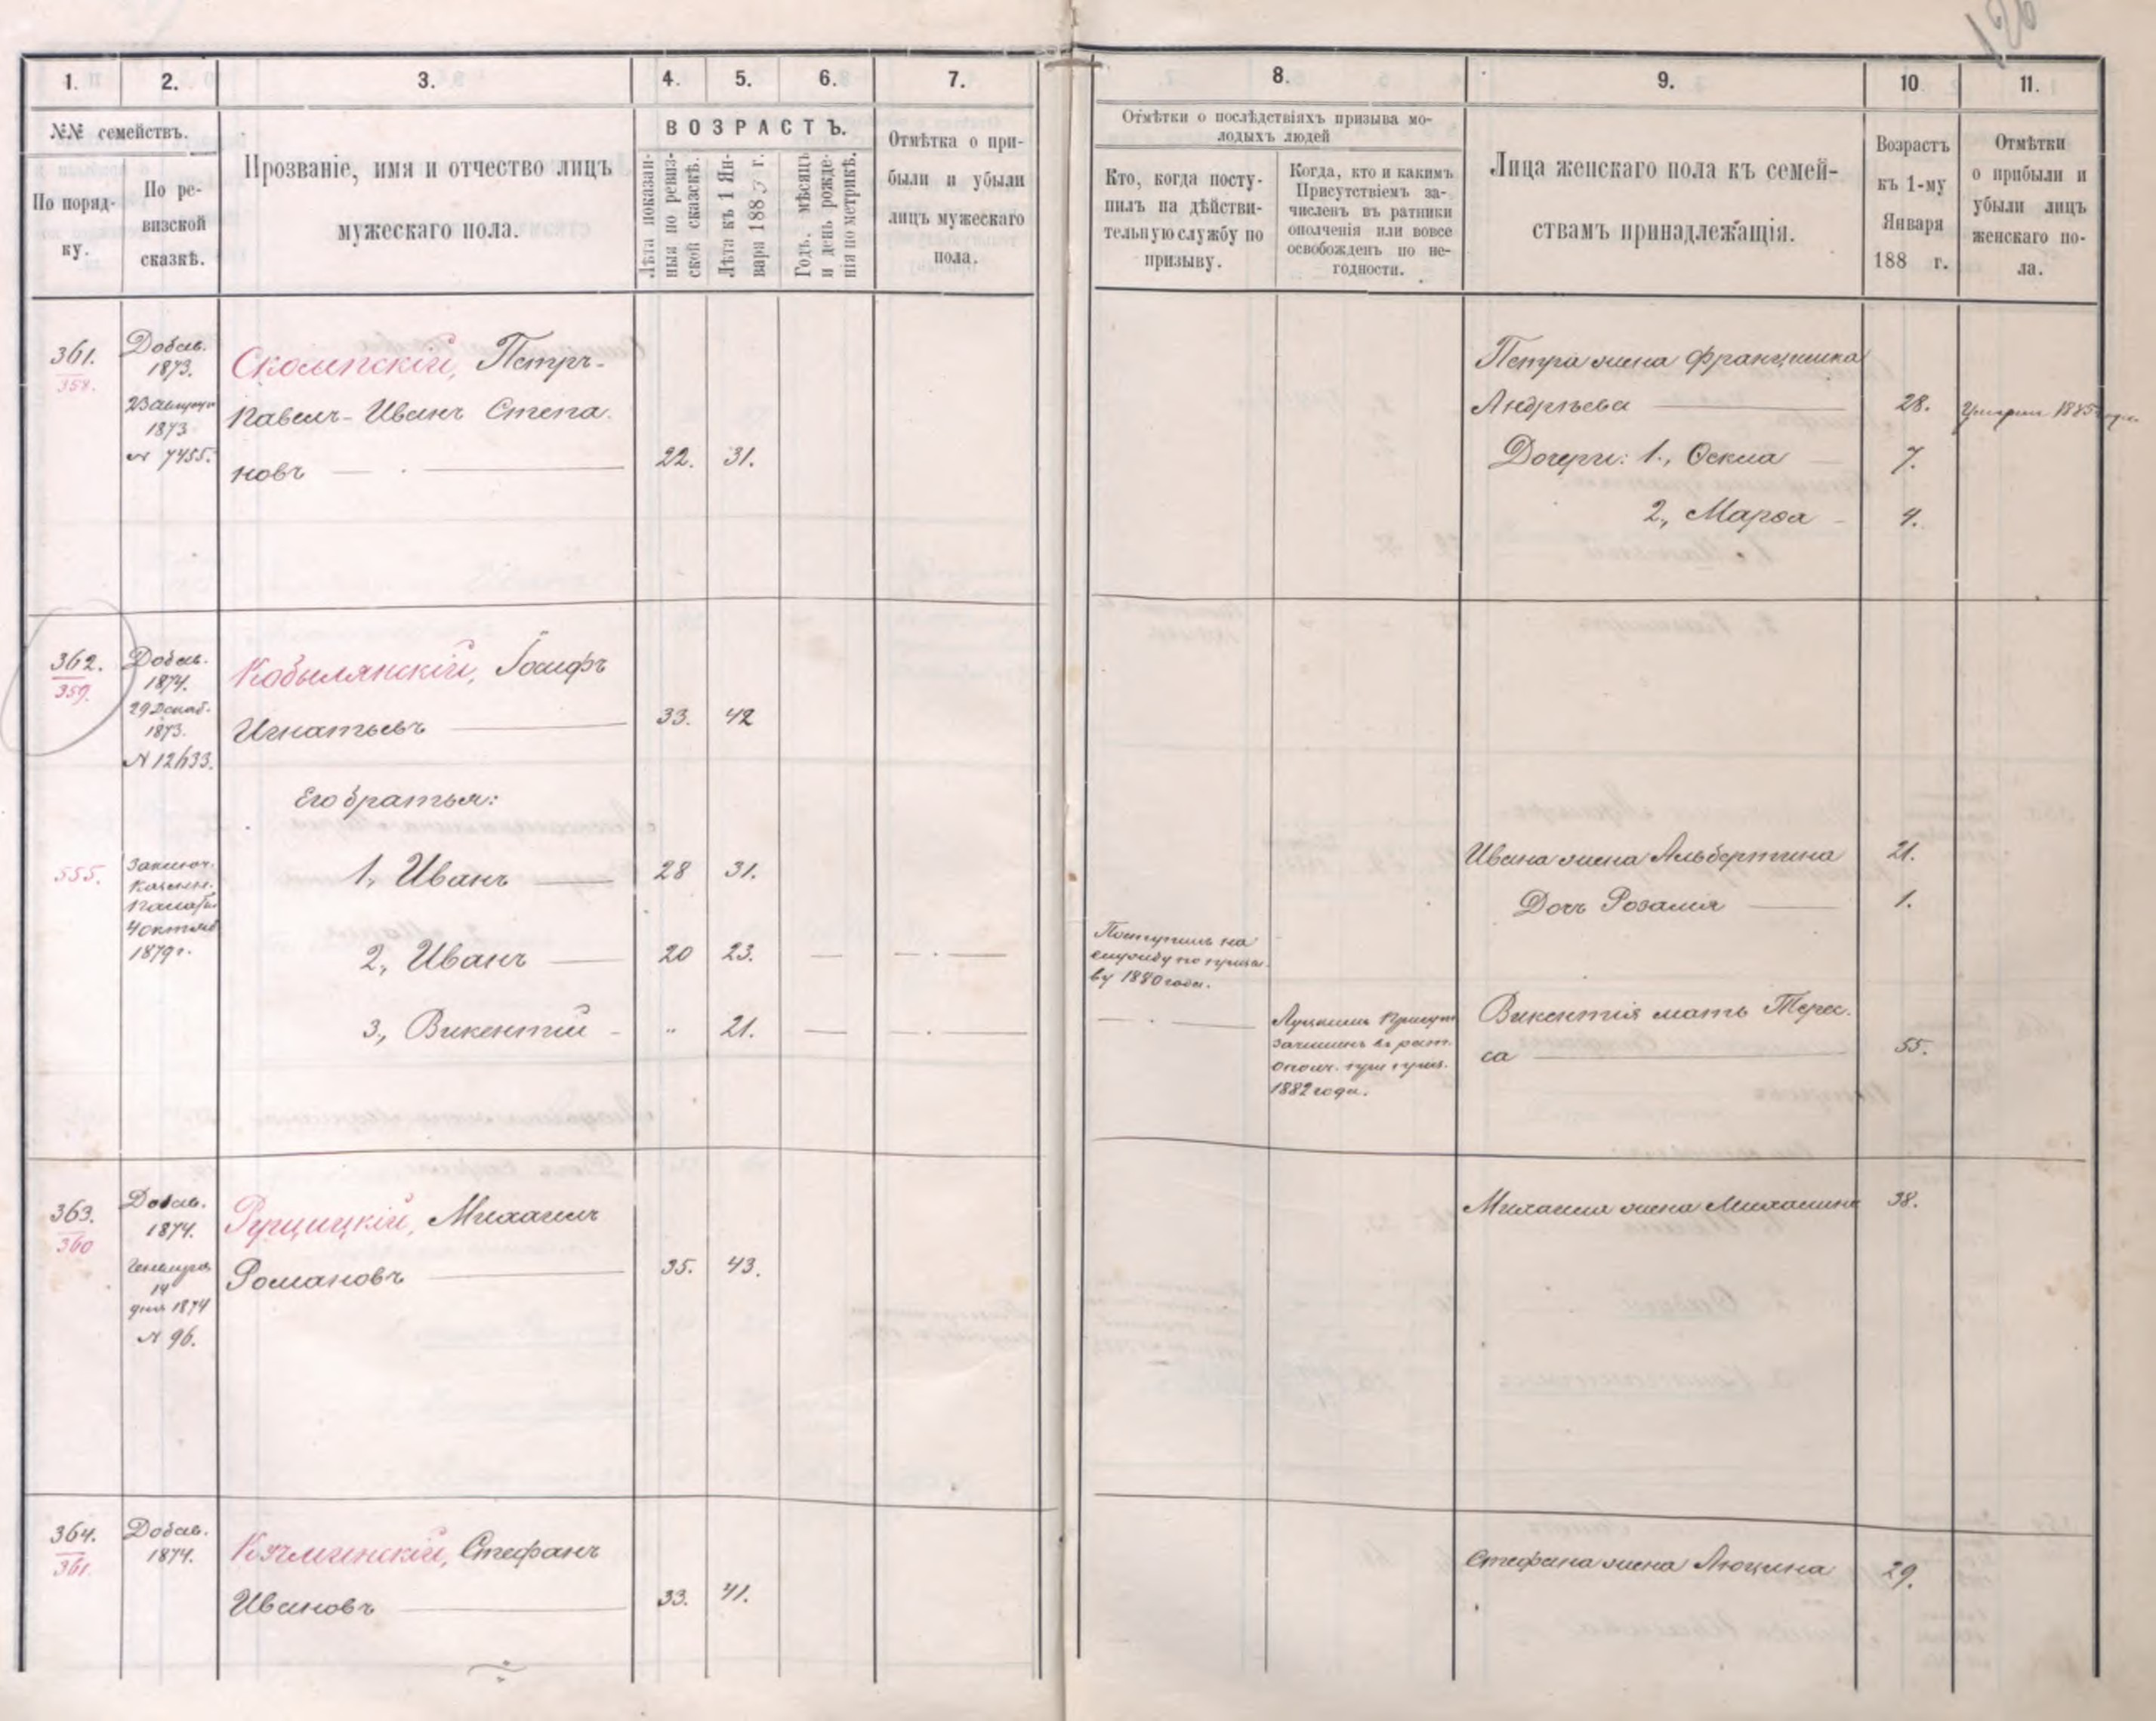 1. 2. 3. 4. 5. 6. 7.
№№ семействъ.
По поряд-
ку.
По ре-
визской
сказкѣ.
Прозваніе, имя и отчество лицъ
мужескаго пола.
ВОЗРАСТЪ.
Лѣта показан-
ныя по ревиз-
ской сказкѣ.
Лѣта къ 1 Ян-
варя 1883 г.
Годъ, мѣсяцъ
и день рожде-
нія по метрикѣ.
Отмѣтка о при-
были и убыли
лицъ мужескаго
пола.
361.
358.
Добав.
1873.
23 Августа
1873
№ 7455.
Петръ-
Павелъ-Иванъ Степа
новъ
22. 31.
362.
359.
Добав.
1874.
29 Декаб.
1873.
№ 12633.
Кобылянскій, Іосифъ
Игнатьевъ
33. 42
Его братья:
555.
Заключ.
Казенн.
Палаты
4 октяб
1879 г.
1, Иванъ 28 31.
2, Иванъ 20 23.
3, Викентій „ 21.
363.
360
Добав.
1874.
14
дня 1874
№ 96.
Михаилъ
Романовъ
35. 43.
364.
361
Добав.
1874.
Стефанъ
Ивановъ
33. 41.
8. 9. 10 11.
Отмѣтки о послѣдствіяхъ призыва мо-
лодыхъ людей
Кто, когда посту-
пилъ на дѣйстви-
тельную службу по
призыву.
Когда, кто и какимъ
Присутствіемъ за-
численъ въ ратники
ополченія или вовсе
освобожденъ по не-
годности.
Лица женскаго пола къ семей-
ствамъ принадлежащія.
Возрастъ
къ 1-му
Января
188 г.
Отмѣтки
о прибыли и
убыли лицъ
женскаго по-
ла.
Петра жена Францишка
Андрѣева 28. 1885
Дочери: 1., 7.
2, Марѳа 4.
Ивана жена Альбертина 21.
Дочь Розалія 1.
Поступилъ на
службу по призы
ву 1880 года.
Луцкимъ Присут
зачисленъ въ рат.
ополч. при приз.
1882 года.
Викентія мать Терес.
са 55.
Михаила жена Михалина 38.
Стефана жена Люцина 29.